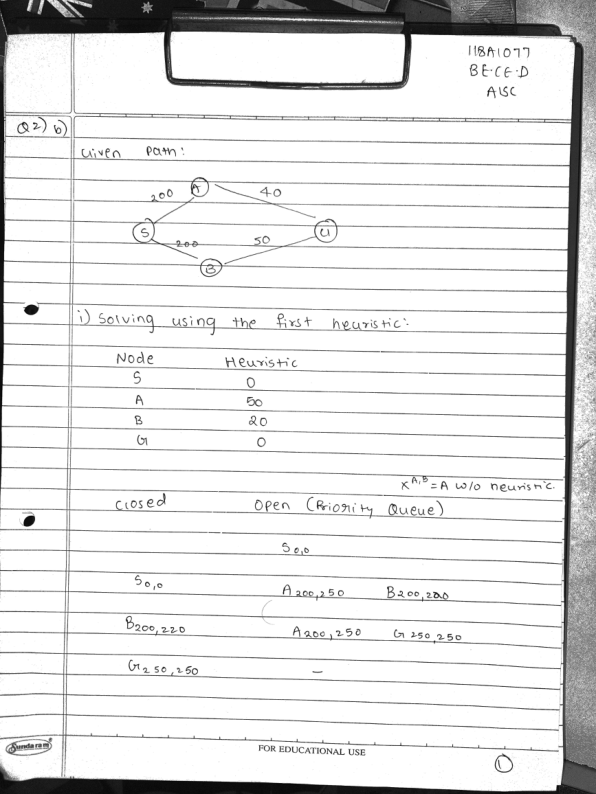 118A1077
BE-CE-D
AISC
Q2) b)
Given path:
A
200
40
S
G
200
50
B
i) Solving using the first heuristic:-
Node Heuristic
S 0
A 50
B 20
G 0
X A,B = A w/o heuristic.
Closed Open (Priority Queue)
S 0,0
S 0,0 A 200,250 B 200,220
B 200,220 A 200,250 G 250,250
G 250,250 –
Sundaram
FOR EDUCATIONAL USE
1